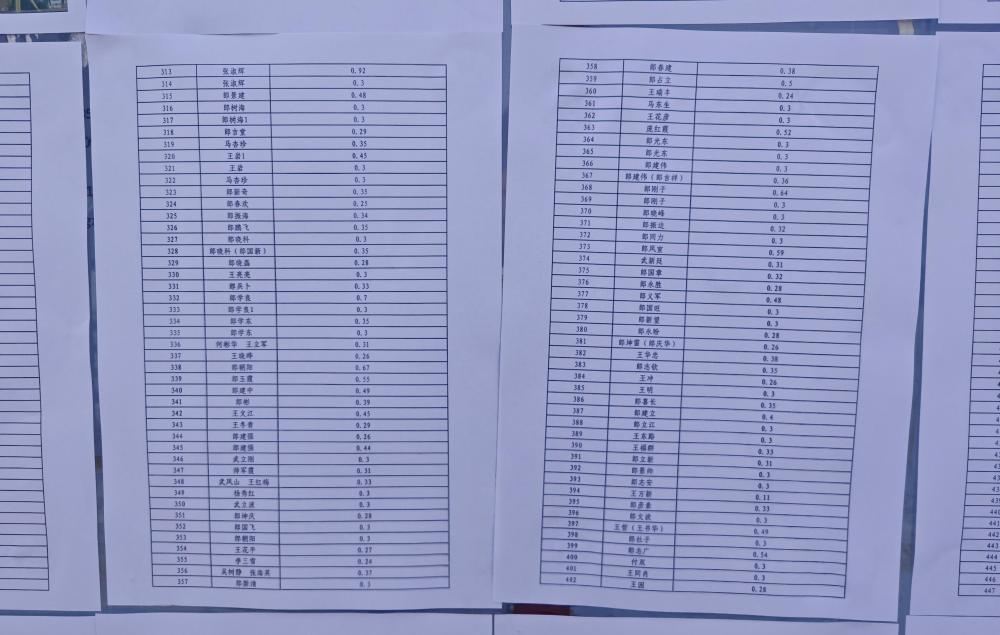 313 张淑辉 0.92
314 张淑辉 0.3
315 郎景建 0.48
316 郎树海 0.3
317 郎树海1 0.3
318 郎吉堂 0.29
319 马杏珍 0.35
320 王岩1 0.45
321 王岩 0.3
322 马杏珍 0.3
323 郎新奇 0.35
324 郎春欢 0.25
325 郎振海 0.34
326 郎鹏飞 0.35
327 郎晓科 0.3
328 郎晓科（郎国新） 0.35
329 郎晓磊 0.28
330 王亮亮 0.3
331 郎兵卜 0.33
332 郎学良 0.7
333 郎学良1 0.3
334 郎学东 0.35
335 郎学东 0.3
336 何彬华 王立军 0.31
337 王晓峰 0.26
338 郎朝阳 0.67
339 郎玉霞 0.55
340 郎建中 0.49
341 郎彬 0.39
342 王文江 0.45
343 王冬青 0.29
344 郎建强 0.26
345 郎建强 0.44
346 武立刚 0.3
347 帅军霞 0.31
348 武凤山 王红梅 0.33
349 杨秀红 0.3
350 武立波 0.3
351 郎坤庆 0.28
352 郎国飞 0.3
353 郎朝阳 0.3
354 王花平 0.27
355 李三雪 0.24
356 吴树静 张海英 0.37
357 郎新清 0.3
358 郎春建 0.38
359 郎占立 0.5
360 王瑞丰 0.24
361 马东生 0.3
362 王花彦 0.3
363 庞红霞 0.52
364 郎光东 0.3
365 郎光东 0.3
366 郎建伟 0.3
367 郎建伟（郎吉祥） 0.36
368 郎刚子 0.64
369 郎刚子 0.3
370 郎晓峰 0.3
371 郎振达 0.32
372 郎同力 0.3
373 郎凤宣 0.59
374 武新廷 0.31
375 郎国章 0.32
376 郎永胜 0.28
377 郎义军 0.48
378 郎国旺 0.3
379 郎新望 0.3
380 郎永盼 0.28
381 郎坤雷（郎庆华） 0.26
382 王华忠 0.38
383 郎志钦 0.35
384 王冲 0.26
385 王明 0.3
386 郎喜长 0.35
387 郎建立 0.4
388 郎立江 0.3
389 王东路 0.3
390 王福群 0.33
391 郎立新 0.31
392 郎景帅 0.3
393 郎志安 0.3
394 王方新 0.11
395 郎彦章 0.33
396 郎文波 0.3
397 王哲（王书华） 0.49
398 郎社子 0.3
399 郎志广 0.54
400 付双 0.3
401 王同肖 0.3
402 王国 0.28
441
442
443
444
445
446
447